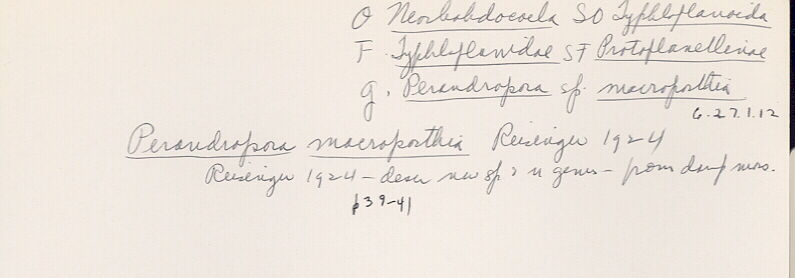 O Neorhabdocoela SO Typhloplanoida
F. Typhloplanidae SF Protoplanellinae
g. Perandropora sp. macroposthia
6.27.1.12
Perandropora macroposthia Reisinger 1924
Reisinger 1924 - descr new sp & n genus - from damp moss.
p39-41